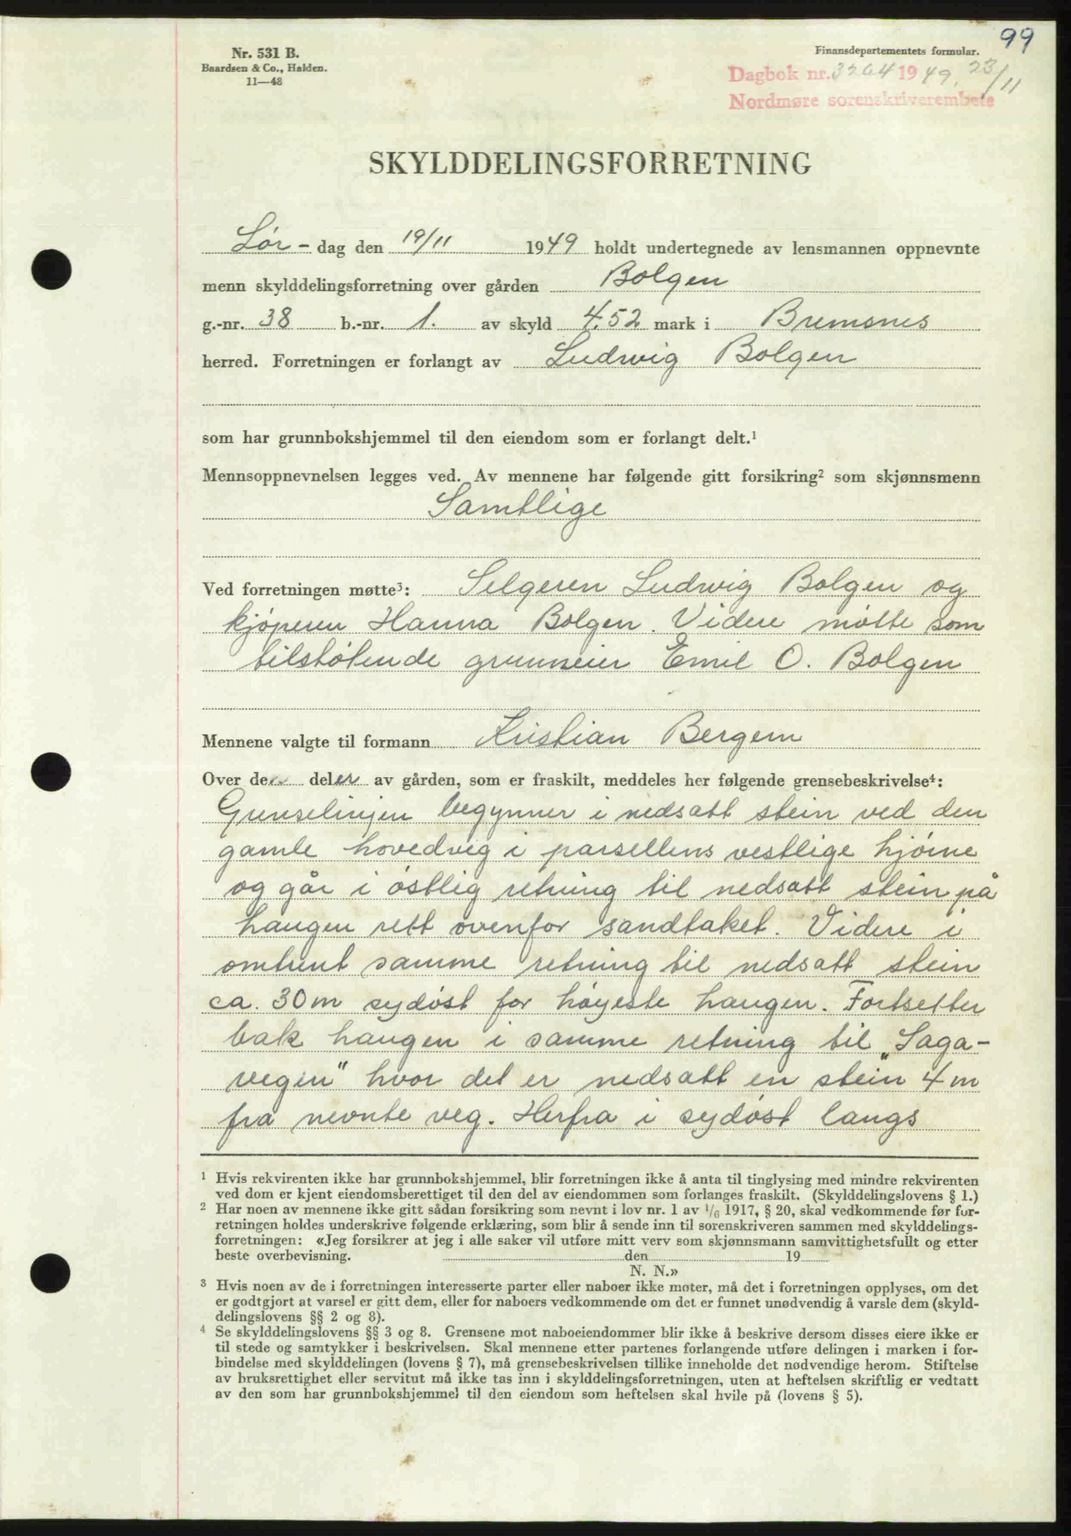 99
Nr. 531 B.
Baardsen & Co., Halden.
11—48
Finansdepartementets formular.
Dagbok nr. 3264 1949, 23/11
Nordmøre sorenskriverembete
SKYLDDELINGSFORRETNING
Lør - dag den 19/11 1949 holdt undertegnede av lensmannen oppnevnte
menn skylddelingsforretning over gården Bolgen
g.-nr. 38 b.-nr. 1. av skyld 4.52 mark i Bremsnes
herred. Forretningen er forlangt av Ludwig Bolgen
som har grunnbokshjemmel til den eiendom som er forlangt delt.¹
Mennsoppnevnelsen legges ved. Av mennene har følgende gitt forsikring² som skjønnsmenn
Samtlige
Ved forretningen møtte³: Selgeren Ludwig Bolgen og
kjøperen Hanna Bolgen. Videre møtte som
tilstøtende grunneier Emil O. Bolgen
Mennene valgte til formann Kristian Bergem
Over de deler av gården, som er fraskilt, meddeles her følgende grensebeskrivelse⁴:
Grenselinjen begynner i nedsatt stein ved den
gamle hovedveg i parsellens vestlige hjørne
og går i østlig retning til nedsatt stein på
haugen rett ovenfor sandtaket. Videre i
omtrent samme retning til nedsatt stein
ca. 30 m sydøst for høyeste haugen. Fortsetter
bak haugen i samme retning til "Saga-
vegen" hvor det er nedsatt en stein 4 m
fra nevnte veg. Herfra i sydøst langs
¹ Hvis rekvirenten ikke har grunnbokshjemmel, blir forretningen ikke å anta til tinglysing med mindre rekvirenten
ved dom er kjent eiendomsberettiget til den del av eiendommen som forlanges fraskilt. (Skylddelingslovens § 1.)
² Har noen av mennene ikke gitt sådan forsikring som nevnt i lov nr. 1 av 1/6 1917, § 20, skal vedkommende før for-
retningen holdes underskrive følgende erklæring, som blir å sende inn til sorenskriveren sammen med skylddelings-
forretningen: «Jeg forsikrer at jeg i alle saker vil utføre mitt verv som skjønnsmann samvittighetsfullt og etter
beste overbevisning. den 19
N. N.»
³ Hvis noen av de i forretningen interesserte parter eller naboer ikke møter, må det i forretningen opplyses, om det
er godtgjort at varsel er gitt dem, eller for naboers vedkommende om det er funnet unødvendig å varsle dem (skyld-
delingslovens §§ 2 og 8).
⁴ Se skylddelingslovens §§ 3 og 8. Grensene mot naboeiendommer blir ikke å beskrive dersom disses eiere ikke er
til stede og samtykker i beskrivelsen. Skal mennene etter partenes forlangende utføre delingen i marken i for-
bindelse med skylddelingen (lovens § 7), må grensebeskrivelsen tillike inneholde det nødvendige herom. Stiftelse
av bruksrettighet eller servitut må ikke tas inn i skylddelingsforretningen, uten at heftelsen skriftlig er vedtatt
av den som har grunnbokshjemmel til den eiendom som heftelsen skal hvile på (lovens § 5).